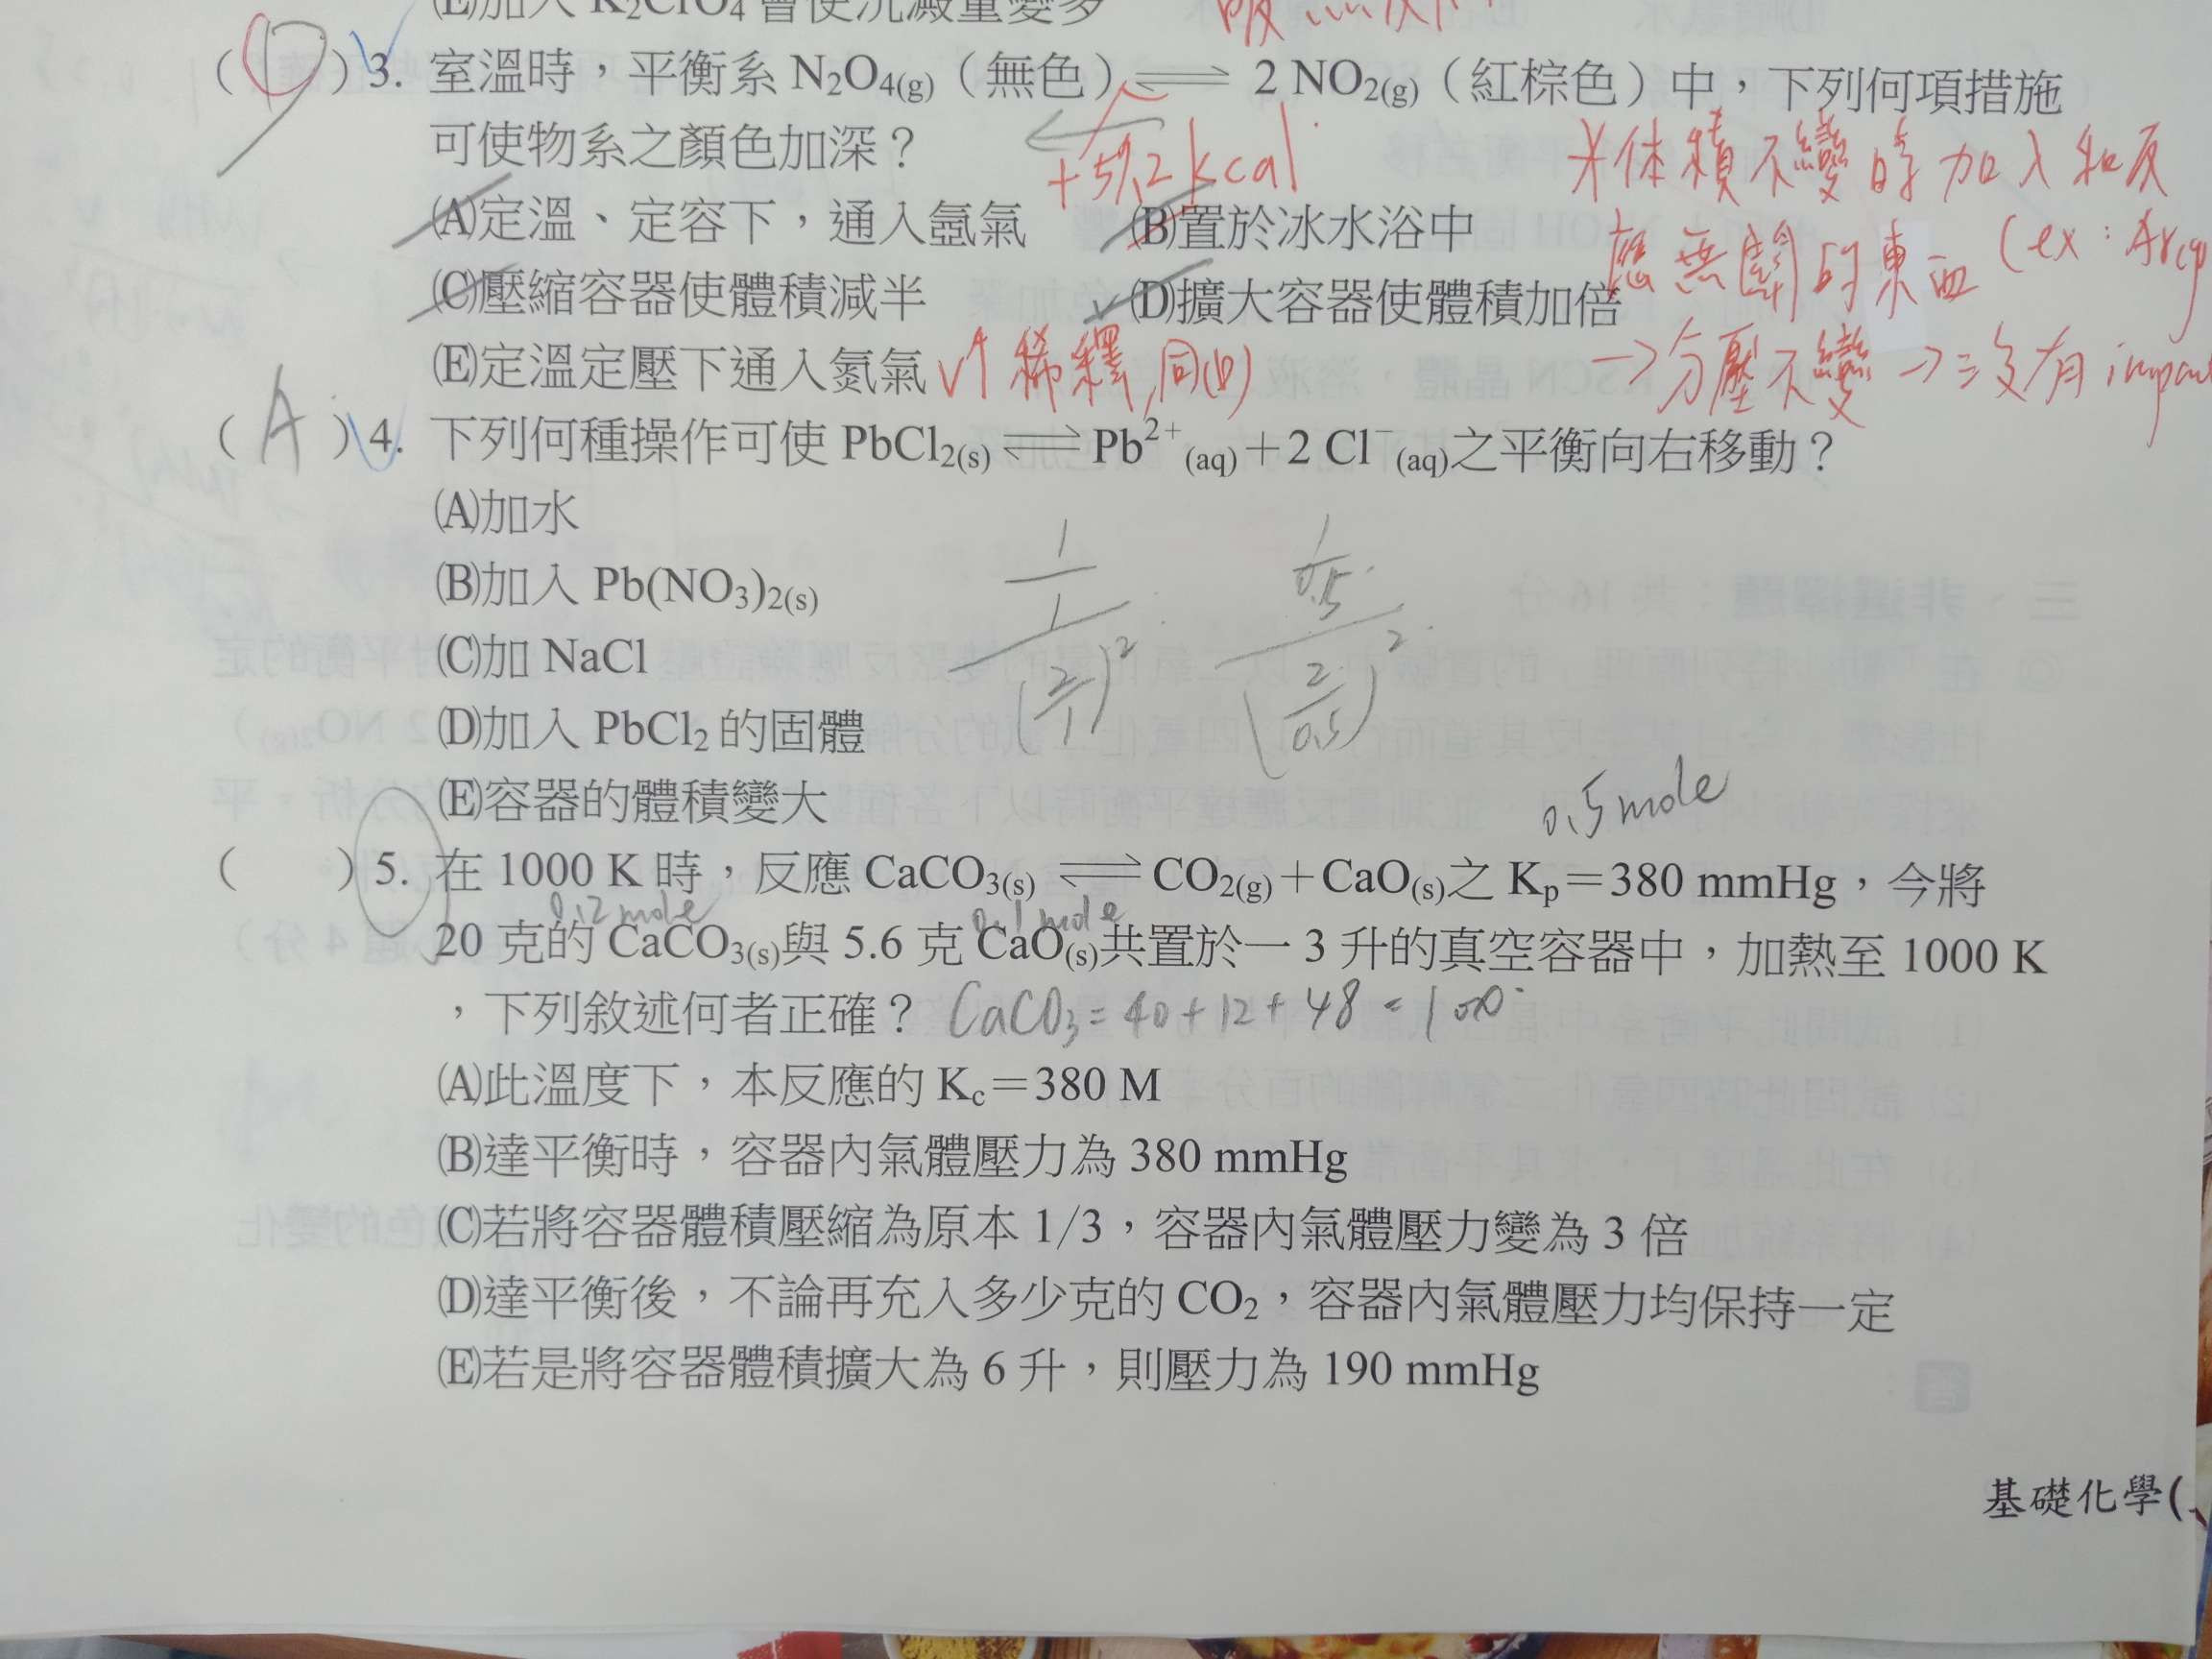 (E)加入 K₂CrO₄ 會使沉澱量變多
吸熱反
( D ) 3. 室溫時，平衡系 N₂O₄(g)（無色）⇌ 2 NO₂(g)（紅棕色）中，下列何項措施
可使物系之顏色加深？
+57.2 kcal
(A)定溫、定容下，通入氬氣 (B)置於冰水浴中
(C)壓縮容器使體積減半 (D)擴大容器使體積加倍
(E)定溫定壓下通入氮氣 V↑ 稀釋,同(D)
体積不變時加入和反
應無關的東西 (ex : Ar(g)
→分壓不變 → 沒有 impact
( A ) 4. 下列何種操作可使 PbCl₂(s) ⇌ Pb²⁺(aq)＋2 Cl⁻(aq)之平衡向右移動？
(A)加水
(B)加入 Pb(NO₃)₂(s)
(C)加 NaCl
(D)加入 PbCl₂ 的固體
(E)容器的體積變大
1/1 / (2/1)²
1/0.5 / (2/0.5)²
0.5 mole
( ) 5. 在 1000 K 時，反應 CaCO₃(s) ⇌ CO₂(g)＋CaO(s)之 Kp＝380 mmHg，今將
0.2 mole 0.1 mole
20 克的 CaCO₃(s)與 5.6 克 CaO(s)共置於一 3 升的真空容器中，加熱至 1000 K
，下列敘述何者正確？ CaCO₃ = 40 + 12 + 48 = 100
(A)此溫度下，本反應的 Kc＝380 M
(B)達平衡時，容器內氣體壓力為 380 mmHg
(C)若將容器體積壓縮為原本 1/3，容器內氣體壓力變為 3 倍
(D)達平衡後，不論再充入多少克的 CO₂，容器內氣體壓力均保持一定
(E)若是將容器體積擴大為 6 升，則壓力為 190 mmHg
基礎化學(